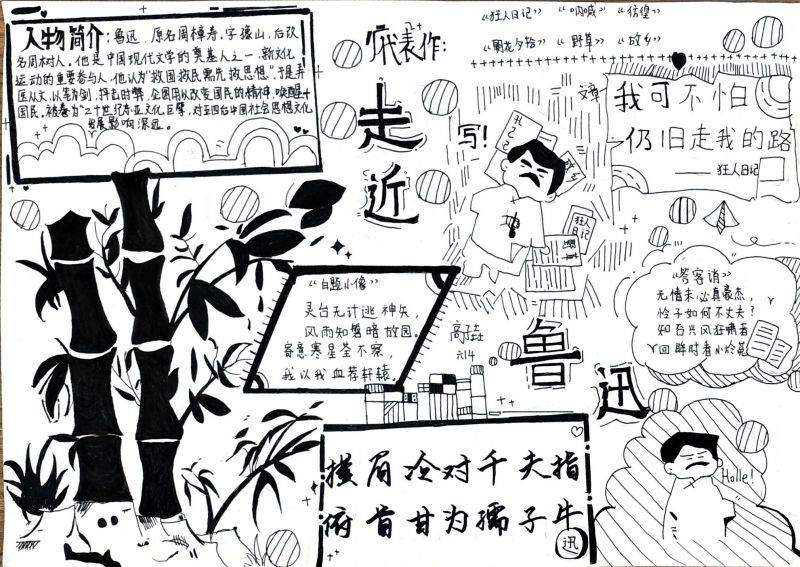 人物简介:鲁迅,原名周樟寿,字豫山,后改
名周树人,他是中国现代文学的奠基人之一,新文化
运动的重要参与人,他认为“救国救民需先救思想”,于是弃
医从文,以笔为剑,抨击时弊,企图用从改变国民的精神,唤醒
国民,被誉为“二十世纪东亚文化巨擘,对五四台中国社会思想文化
发展影响深远。
代表作:
《狂人日记》 《呐喊》 《彷徨》
《朝花夕拾》 《野草》 《故乡》
走近
鲁迅
写!
文章
孔乙己
故乡
狂人日记
野草
我可不怕
仍旧走我的路
——狂人日记
《自题小像》
灵台无计逃神矢,
风雨如磐暗故园。
寄意寒星荃不察,
我以我血荐轩辕。
《答客诮》
无情未必真豪杰,
怜子如何不丈夫?
知否兴风狂啸者
回眸时看小於菟
横眉冷对千夫指
俯首甘为孺子牛
迅
Holle!